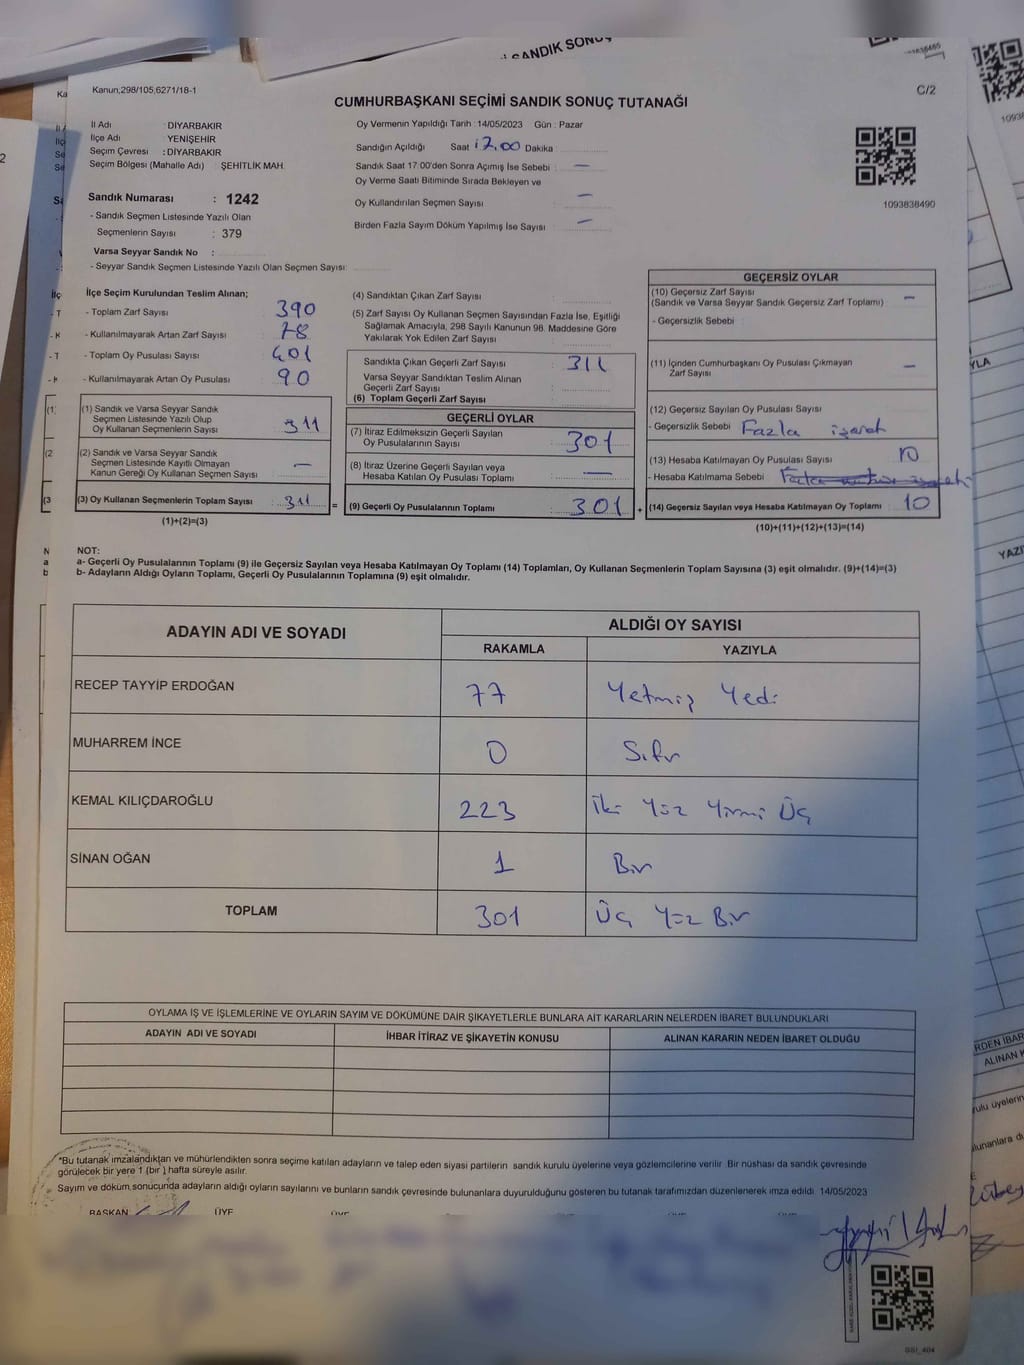 SANDIK SONUÇ
Kanun,298/105,6271/18-1
C/2
CUMHURBAŞKANI SEÇİMİ SANDIK SONUÇ TUTANAĞI
İl Adı : DİYARBAKIR
İlçe Adı : YENİŞEHİR
Seçim Çevresi : DİYARBAKIR
Seçim Bölgesi (Mahalle Adı) : ŞEHİTLİK MAH.
Sandık Numarası : 1242
- Sandık Seçmen Listesinde Yazılı Olan
Seçmenlerin Sayısı : 379
Varsa Seyyar Sandık No :
- Seyyar Sandık Seçmen Listesinde Yazılı Olan Seçmen Sayısı:
Oy Vermenin Yapıldığı Tarih : 14/05/2023 Gün : Pazar
Sandığın Açıldığı Saat 17.00 Dakika
Sandık Saat 17:00'den Sonra Açımış İse Sebebi : —
Oy Verme Saati Bitiminde Sırada Bekleyen ve
Oy Kullandırılan Seçmen Sayısı : —
Birden Fazla Sayım Döküm Yapılmış İse Sayısı : —
1093838490
İlçe Seçim Kurulundan Teslim Alınan;
- Toplam Zarf Sayısı : 390
- Kullanılmayarak Artan Zarf Sayısı : 78
- Toplam Oy Pusulası Sayısı : 401
- Kullanılmayarak Artan Oy Pusulası : 90
(1) Sandık ve Varsa Seyyar Sandık
Seçmen Listesinde Yazılı Olup
Oy Kullanan Seçmenlerin Sayısı : 311
(2) Sandık ve Varsa Seyyar Sandık
Seçmen Listesinde Kayıtlı Olmayan
Kanun Gereği Oy Kullanan Seçmen Sayısı : —
(3) Oy Kullanan Seçmenlerin Toplam Sayısı : 311
(1)+(2)=(3)
(4) Sandıktan Çıkan Zarf Sayısı :
(5) Zarf Sayısı Oy Kullanan Seçmen Sayısından Fazla İse, Eşitliği
Sağlamak Amacıyla, 298 Sayılı Kanunun 98. Maddesine Göre
Yakılarak Yok Edilen Zarf Sayısı :
Sandıkta Çıkan Geçerli Zarf Sayısı : 311
Varsa Seyyar Sandıktan Teslim Alınan
Geçerli Zarf Sayısı :
(6) Toplam Geçerli Zarf Sayısı :
GEÇERLİ OYLAR
(7) İtiraz Edilmeksizin Geçerli Sayılan
Oy Pusulalarının Sayısı : 301
(8) İtiraz Üzerine Geçerli Sayılan veya
Hesaba Katılan Oy Pusulası Toplamı : —
= (9) Geçerli Oy Pusulalarının Toplamı : 301
GEÇERSİZ OYLAR
(10) Geçersiz Zarf Sayısı
(Sandık ve Varsa Seyyar Sandık Geçersiz Zarf Toplamı) : —
- Geçersizlik Sebebi :
(11) İçinden Cumhurbaşkanı Oy Pusulası Çıkmayan
Zarf Sayısı : —
(12) Geçersiz Sayılan Oy Pusulası Sayısı
- Geçersizlik Sebebi : Fazla işaret
(13) Hesaba Katılmayan Oy Pusulası Sayısı : 10
- Hesaba Katılmama Sebebi :
+ (14) Geçersiz Sayılan veya Hesaba Katılmayan Oy Toplamı : 10
(10)+(11)+(12)+(13)=(14)
NOT:
a- Geçerli Oy Pusulalarının Toplamı (9) ile Geçersiz Sayılan veya Hesaba Katılmayan Oy Toplamı (14) Toplamları, Oy Kullanan Seçmenlerin Toplam Sayısına (3) eşit olmalıdır. (9)+(14)=(3)
b- Adayların Aldığı Oyların Toplamı, Geçerli Oy Pusulalarının Toplamına (9) eşit olmalıdır.
ADAYIN ADI VE SOYADI ALDIĞI OY SAYISI
RAKAMLA YAZIYLA
RECEP TAYYİP ERDOĞAN 77 Yetmiş Yedi
MUHARREM İNCE 0 Sıfır
KEMAL KILIÇDAROĞLU 223 İki Yüz Yirmi Üç
SİNAN OĞAN 1 Bir
TOPLAM 301 Üç Yüz Bir
OYLAMA İŞ VE İŞLEMLERİNE VE OYLARIN SAYIM VE DÖKÜMÜNE DAİR ŞİKAYETLERLE BUNLARA AİT KARARLARIN NELERDEN İBARET BULUNDUKLARI
ADAYIN ADI VE SOYADI İHBAR İTİRAZ VE ŞİKAYETİN KONUSU ALINAN KARARIN NEDEN İBARET OLDUĞU
*Bu tutanak imzalandıktan ve mühürlendikten sonra seçime katılan adayların ve talep eden siyasi partilerin sandık kurulu üyelerine veya gözlemcilerine verilir. Bir nüshası da sandık çevresinde
görülecek bir yere 1 (bir ) hafta süreyle asılır.
Sayım ve döküm sonucunda adayların aldığı oyların sayılarını ve bunların sandık çevresinde bulunanlara duyurulduğunu gösteren bu tutanak tarafımızdan düzenlenerek imza edildi. 14/05/2023
BAŞKAN ÜYE ÜYE ÜYE ÜYE